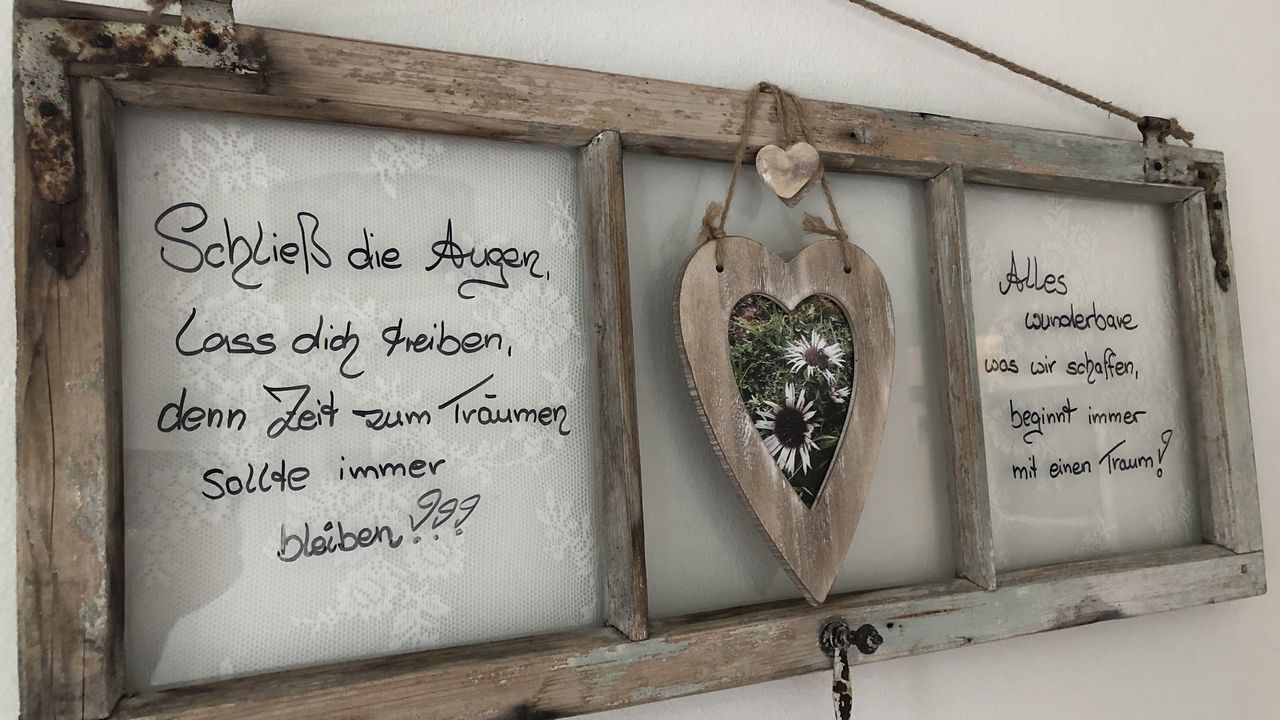 Schließ die Augen,
Lass dich treiben,
denn Zeit zum Träumen
sollte immer
bleiben!!!
Alles
wunderbare
was wir schaffen,
beginnt immer
mit einen Traum!